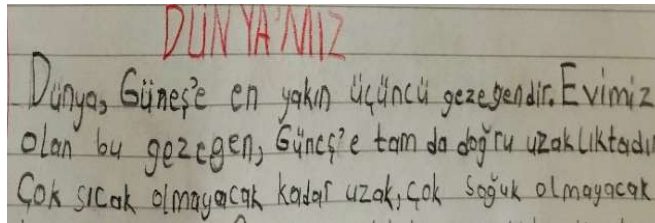 DÜNYA'MIZ
Dünya, Güneş'e en yakın üçüncü gezegendir. Evimiz
olan bu gezegen, Güneş'e tam da doğru uzaklıktadır
Çok sıcak olmayacak kadar uzak, çok soğuk olmayacak